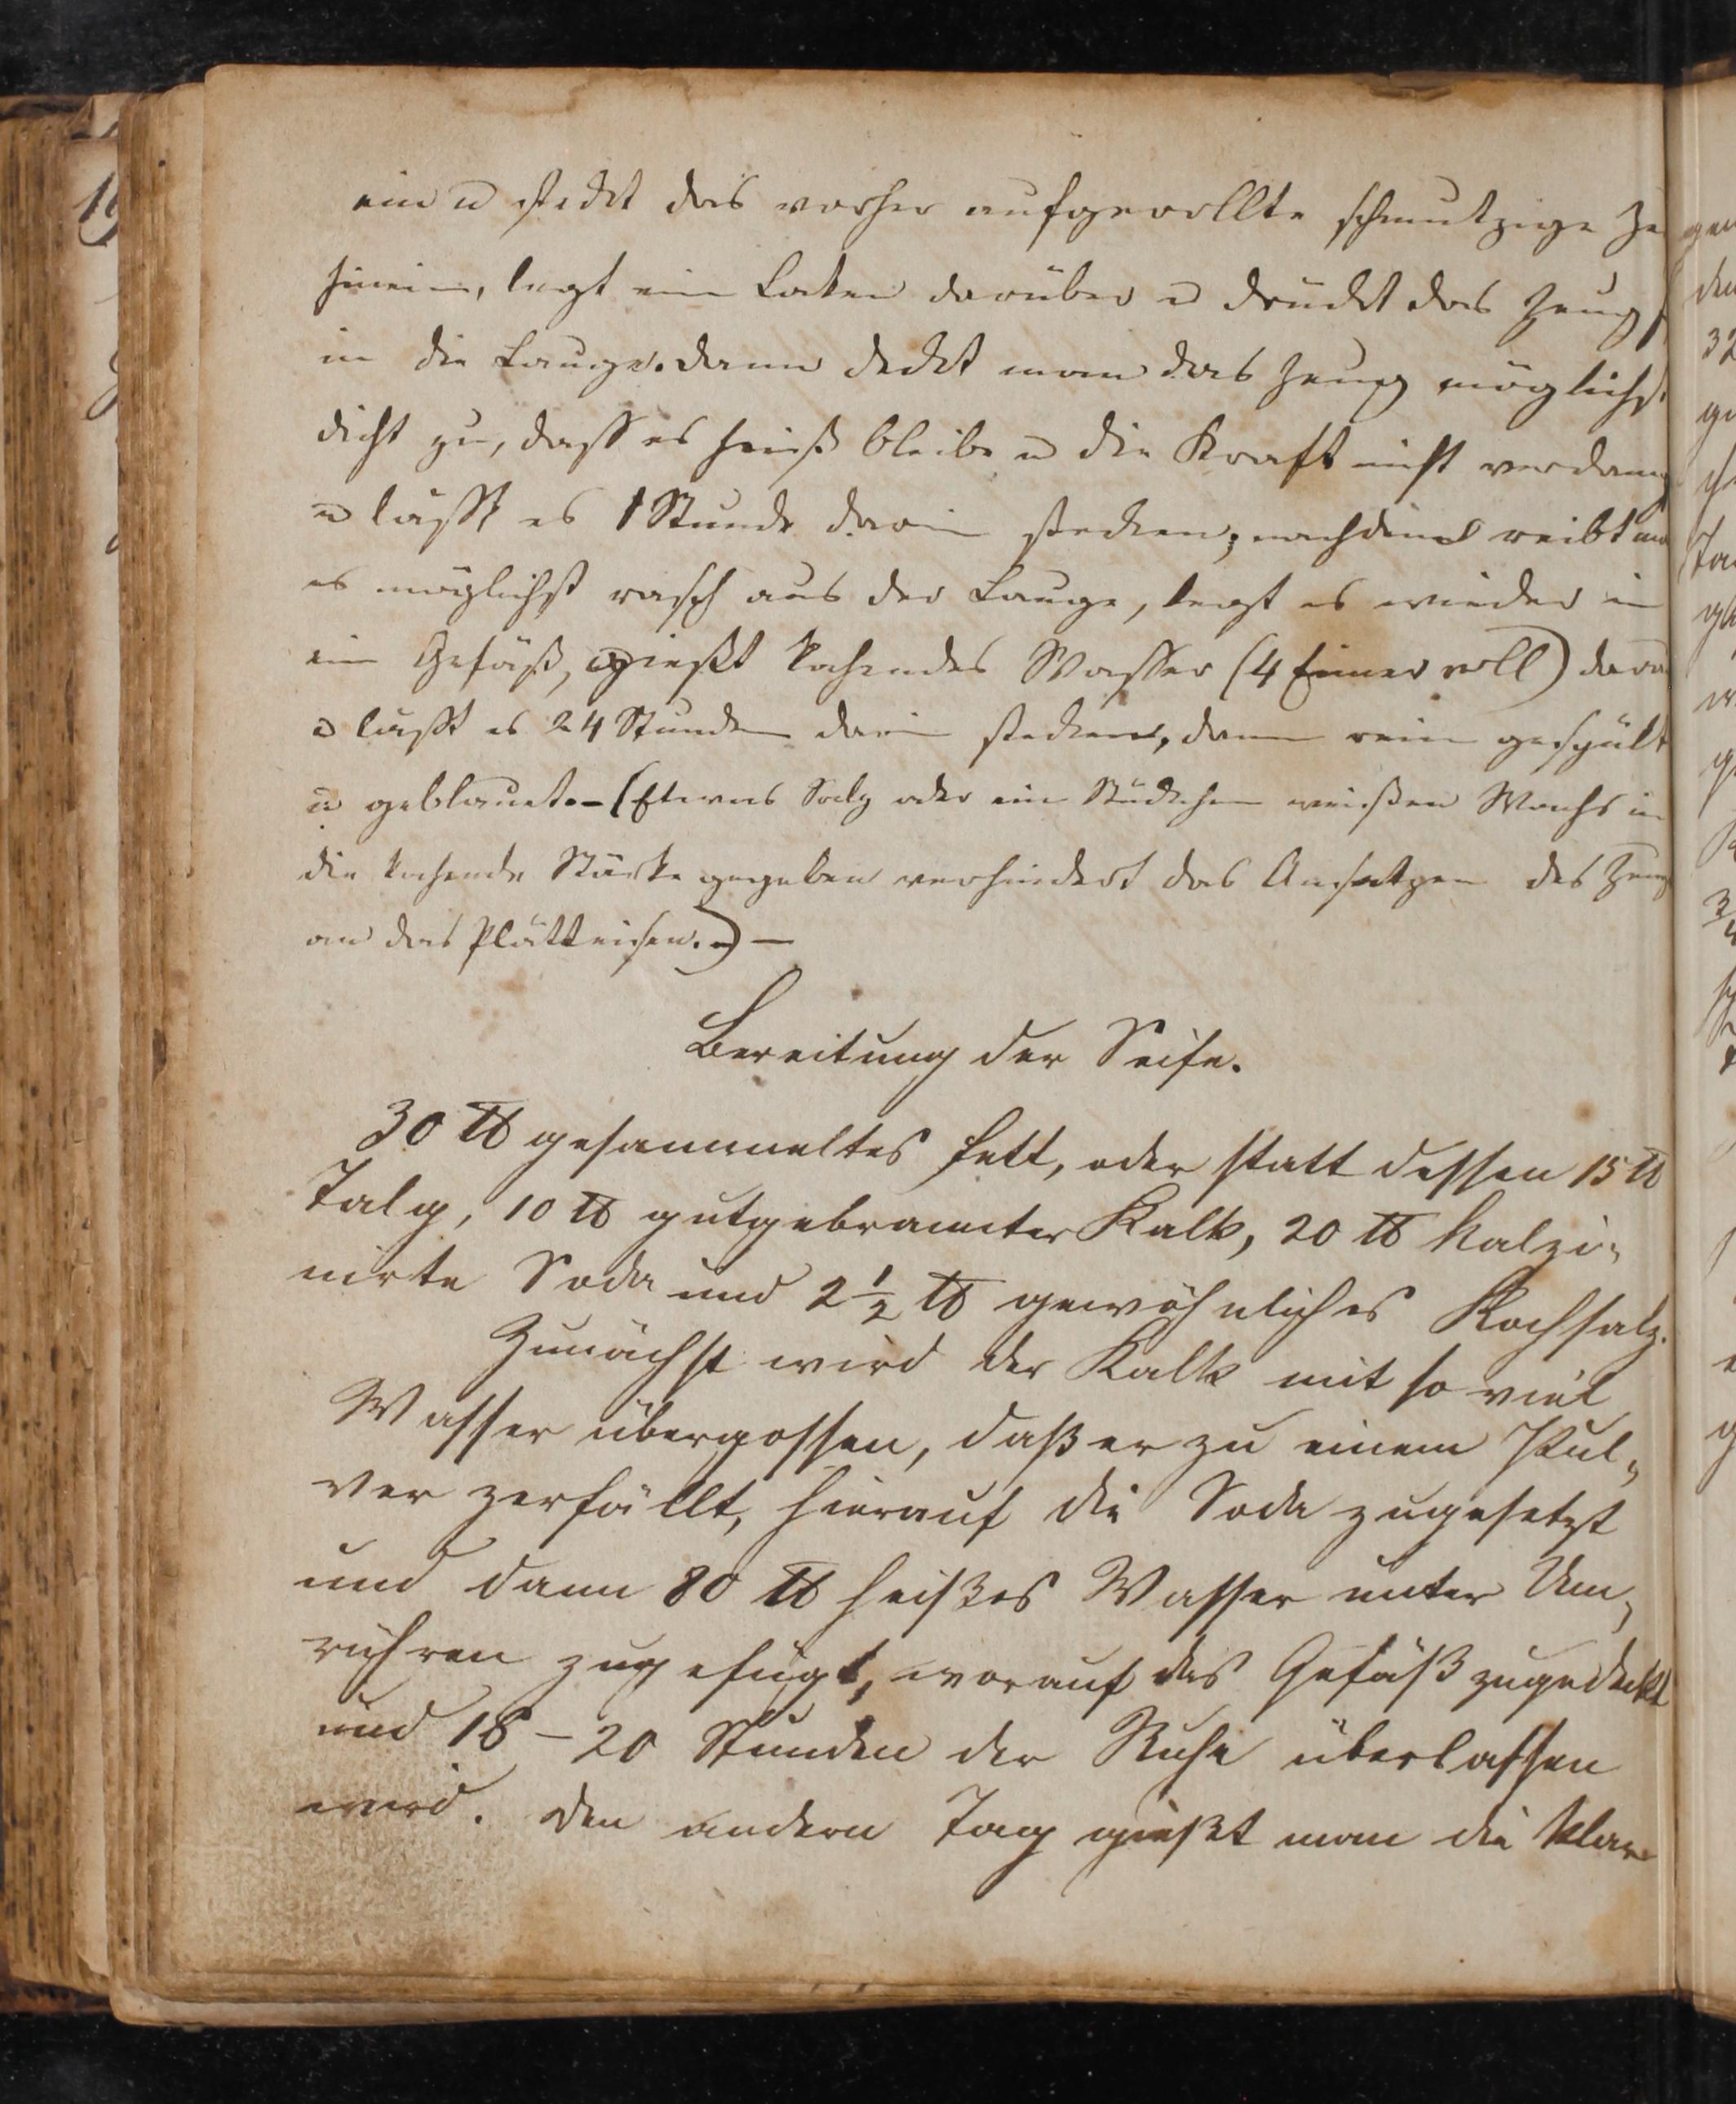 ein u steckt das vorher aufgerollte schmutzige Ze
hinein, legt ein Laken darüber u drückt das Zeug
in die Lauge. dann deckt man das Zeug möglichst
dicht zu, dass es heiß bleibe u die Kraft nicht verdam
u lässt es 1 Stunde darin stecken; nachdem reibt man
es möglichst rasch aus der Lauge, legt es wieder in
ein Gefäß, gießt kochendes Wasser (4 Eimer voll) darau
u lässt es 24 Stunden darin stecken, dann rein gespült
u geblauet. – (Etwas Salz oder ein Stückchen weißen Wachs in
die kochende Stärke gegeben verhindert das Ansetzen des Zeug
an das Plätteisen.) –
Bereitung der Seife.
30 ℔ gesammeltes Fett, oder statt dessen 15 ℔
Talg, 10 ℔ gutgebrannter Kalk, 20 ℔ kalzi-
nirte Soda und 2 1/2 ℔ gewöhnliches Kochsalz.
Zunächst wird der Kalk mit so viel
Wasser übergossen, daß er zu einem Pul-
ver zerfällt, hierauf die Soda zugesetzt
und dann 80 ℔ heißes Wasser unter Um-
rühren zugefügt, worauf das Gefäß zugedeckt
und 18 – 20 Stunden der Ruhe überlassen
wird. Den andern Tag gießt man die klare